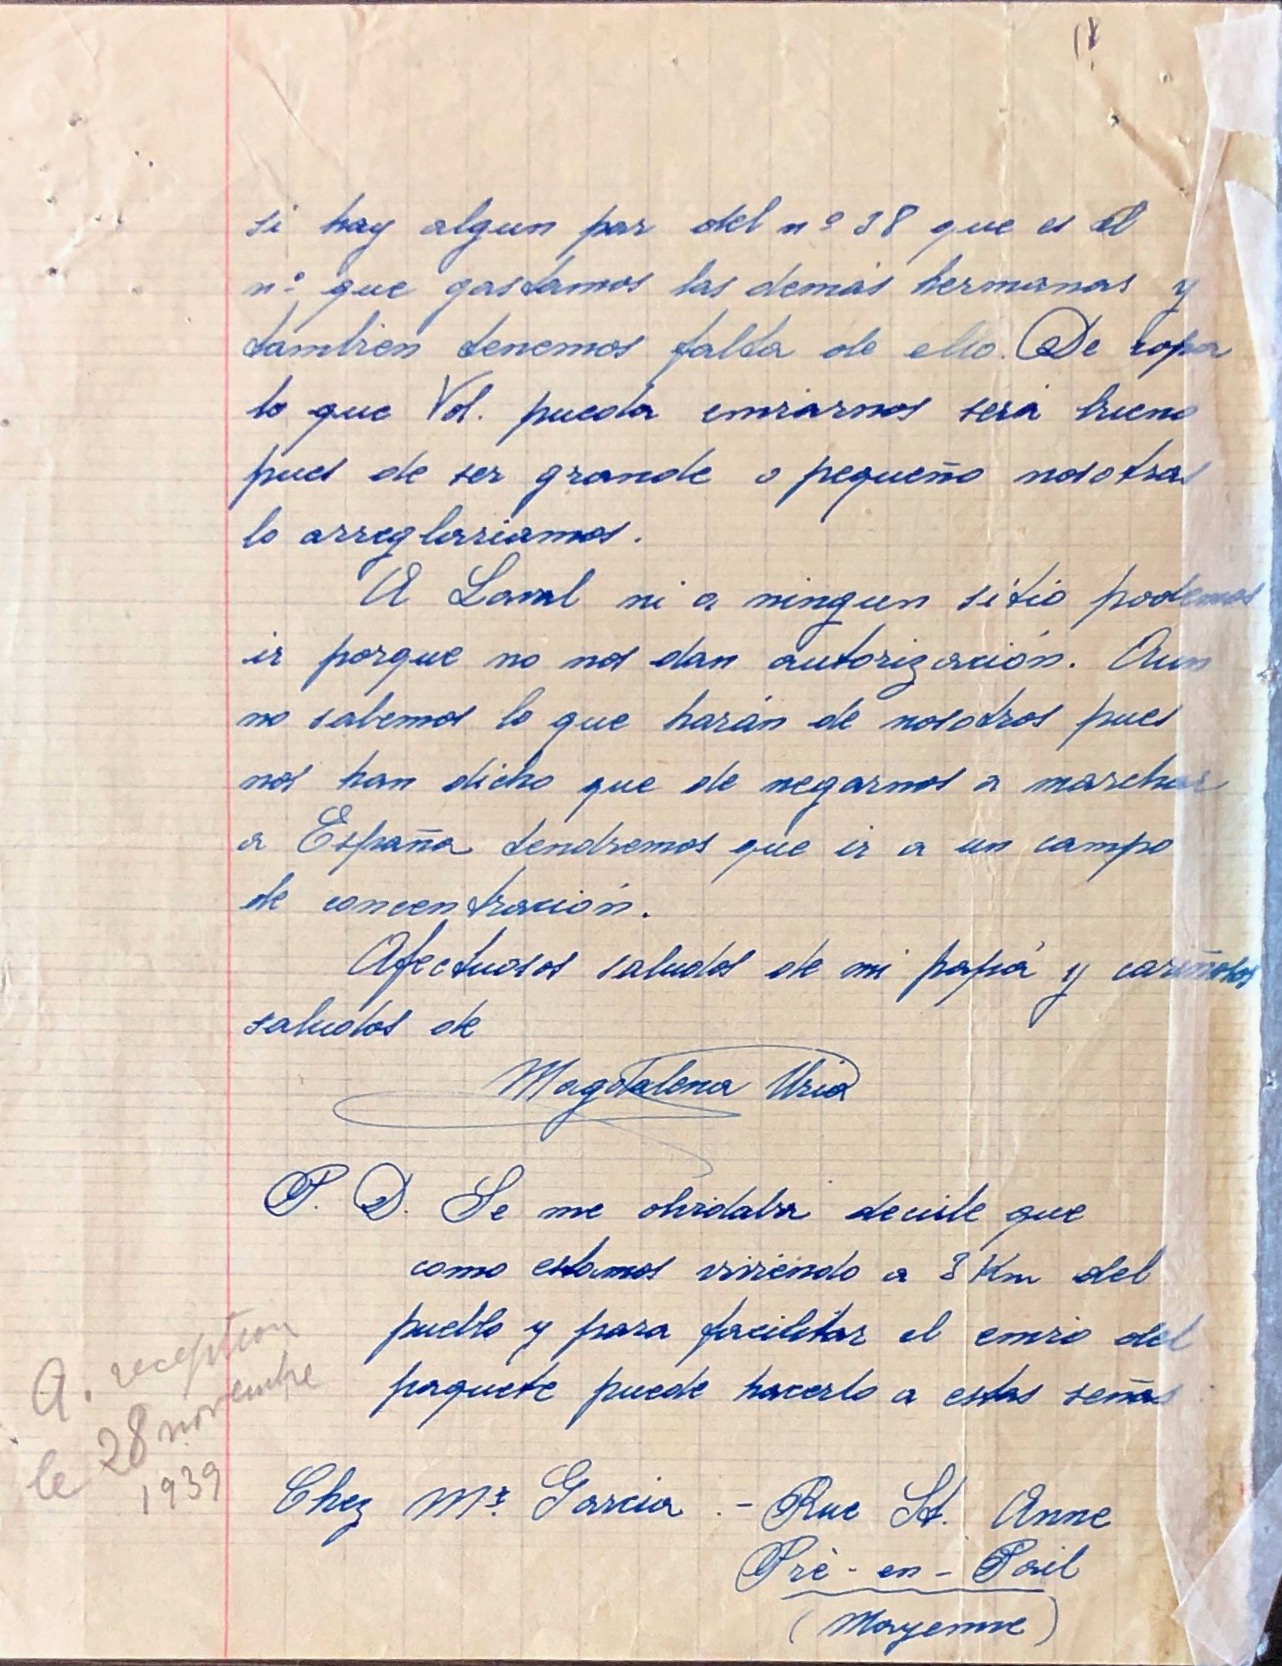 si hay algun par del nº 38 que es el
nº que gastamos las demás hermanas y
tambien tenemos falta de ello. De ropa
lo que Vd. pueda enviarnos será bueno
pues de ser grande o pequeño nosotras
lo arreglariamos.
A Laval ni a ningun sitio podemos
ir porque no nos dan autorización. Aun
no sabemos lo que harán de nosotros pues
nos han dicho que de negarnos a marchar
a España tendremos que ir a un campo
de concentración.
Afectuosos saludos de mi papá y cariñosos
saludos de
Magdalena Uria
P. D. Se me olvidaba decirle que
como estamos viviendo a 3 Km del
pueblo y para facilitar el envio del
paquete puede hacerlo a estas señas
Chez Mr. Garcia .- Rue St. Anne
Pré-en-Pail
(Mayenne)
a. reception
le 28 novembre
1939